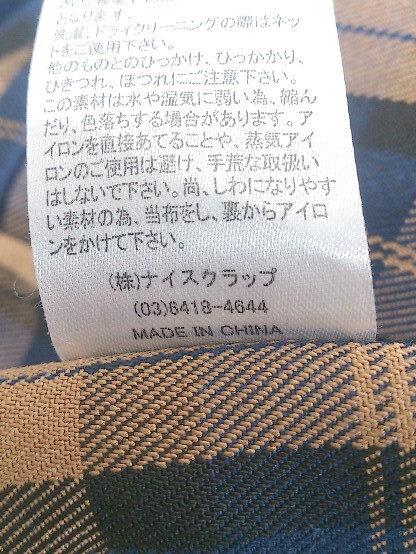 となります。
洗濯、ドライクリーニングの際はネッ
トをご使用下さい。
他のものとのひっかけ、ひっかかり、
ひきつれ、ほつれにご注意下さい。
この素材は水や湿気に弱い為、縮ん
だり、色落ちする場合があります。ア
イロンを直接あてることや、蒸気アイ
ロンのご使用は避け、手荒な取扱い
はしないで下さい。尚、しわになりやす
い素材の為、当布をし、裏からアイロ
ンをかけて下さい。
(株)ナイスクラップ
(03)6418-4644
MADE IN CHINA